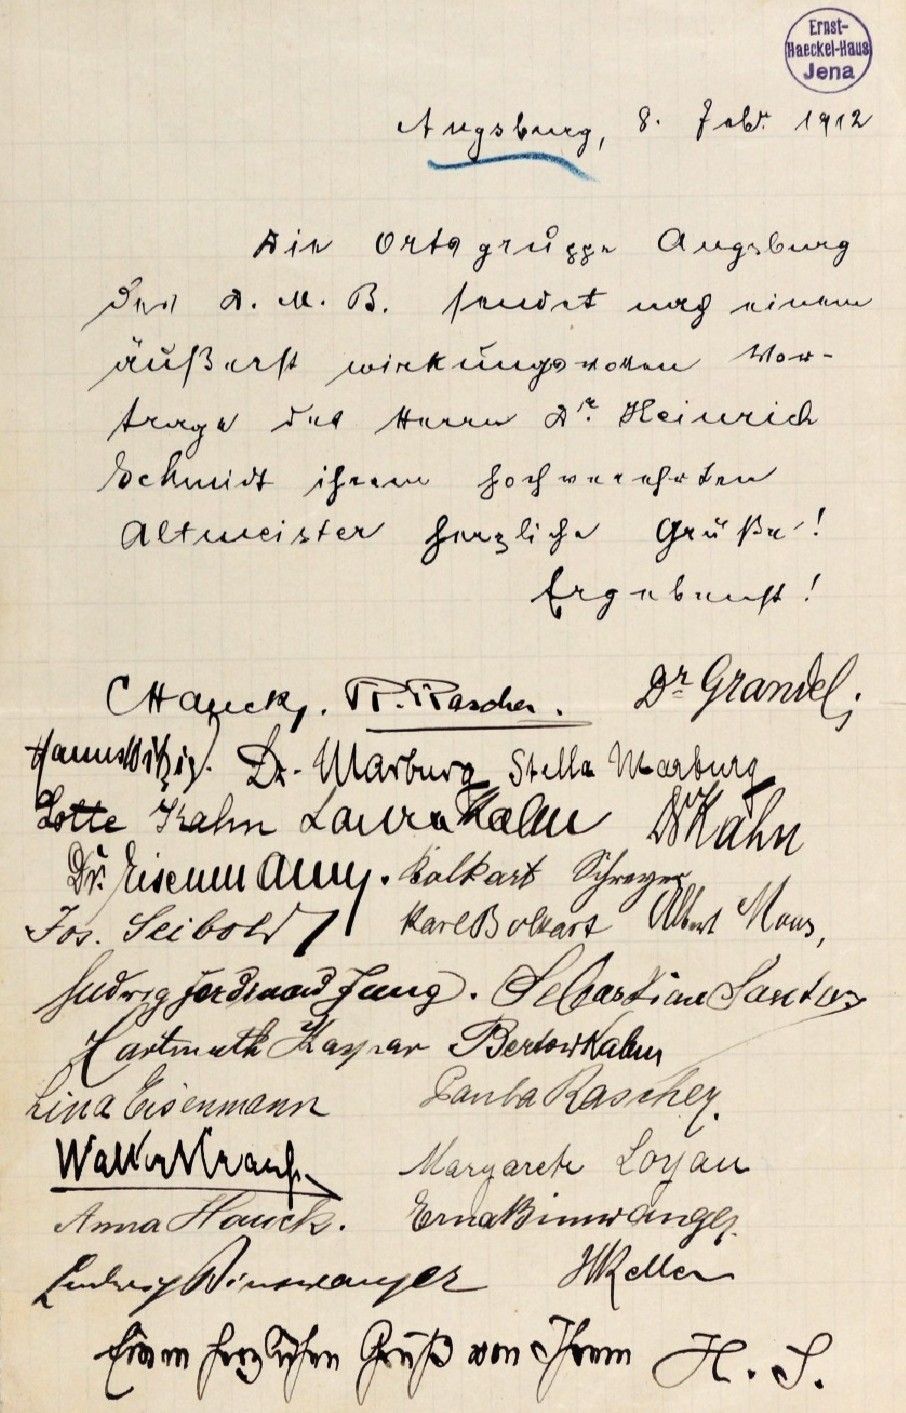 Ernst-
Haeckel-Haus
Jena
Augsburg, 8. Febr. 1912
Die Ortsgruppe Augsburg
des D. M. B. sendet nach einem
äußerst wirkungsvollen Vor-
trage des Herrn Dr. Heinrich
Schmidt ihrem hochverehrten
Altmeister herzliche Grüße!
Ergebenst!
C Hauck, R. Rascher. Dr Grandel,
Hanns Witzig. Dr. Marburg Stella Marburg
Lotte Kahn Laura Kahn Dr Kahn
Dr. Eisenmann. Bolkart Schreyer
Jos. Seibold Karl Bolkart Albert Maas,
Ludwig Ferdinand Jung. Sebastian
Hartmuth Kaspar Kahn
Lina Eisenmann Rascher.
Walter Margarete Loyau
Anna Hauck. Erna Binswanger
Ludwig Binswanger H Keller
Einen herzlichen Gruß von Ihrem H. S.